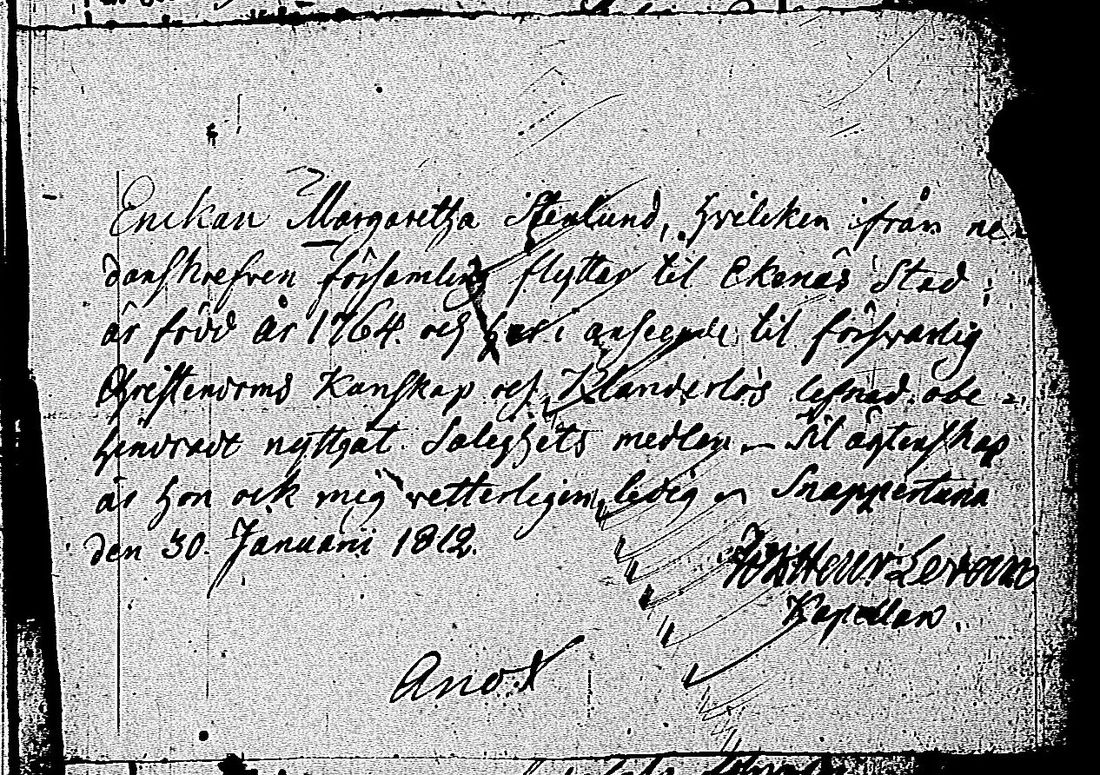 Enckan Margaretha Stenlund, hvilcken från ne-
danskrefven församling flyttar til Ekenäs Stad;
är född år 1764. och har i anseende til försvarlig
Christendoms Kunskap och Klanderlös lefnad obe-
hindradt nyttgat Salighets medlen. Til ägtenskap
är hon ock mig vetterligen ledig Snappertuna
den 30. Januarii 1812.
Joh Henr
Kapellan.
Anot